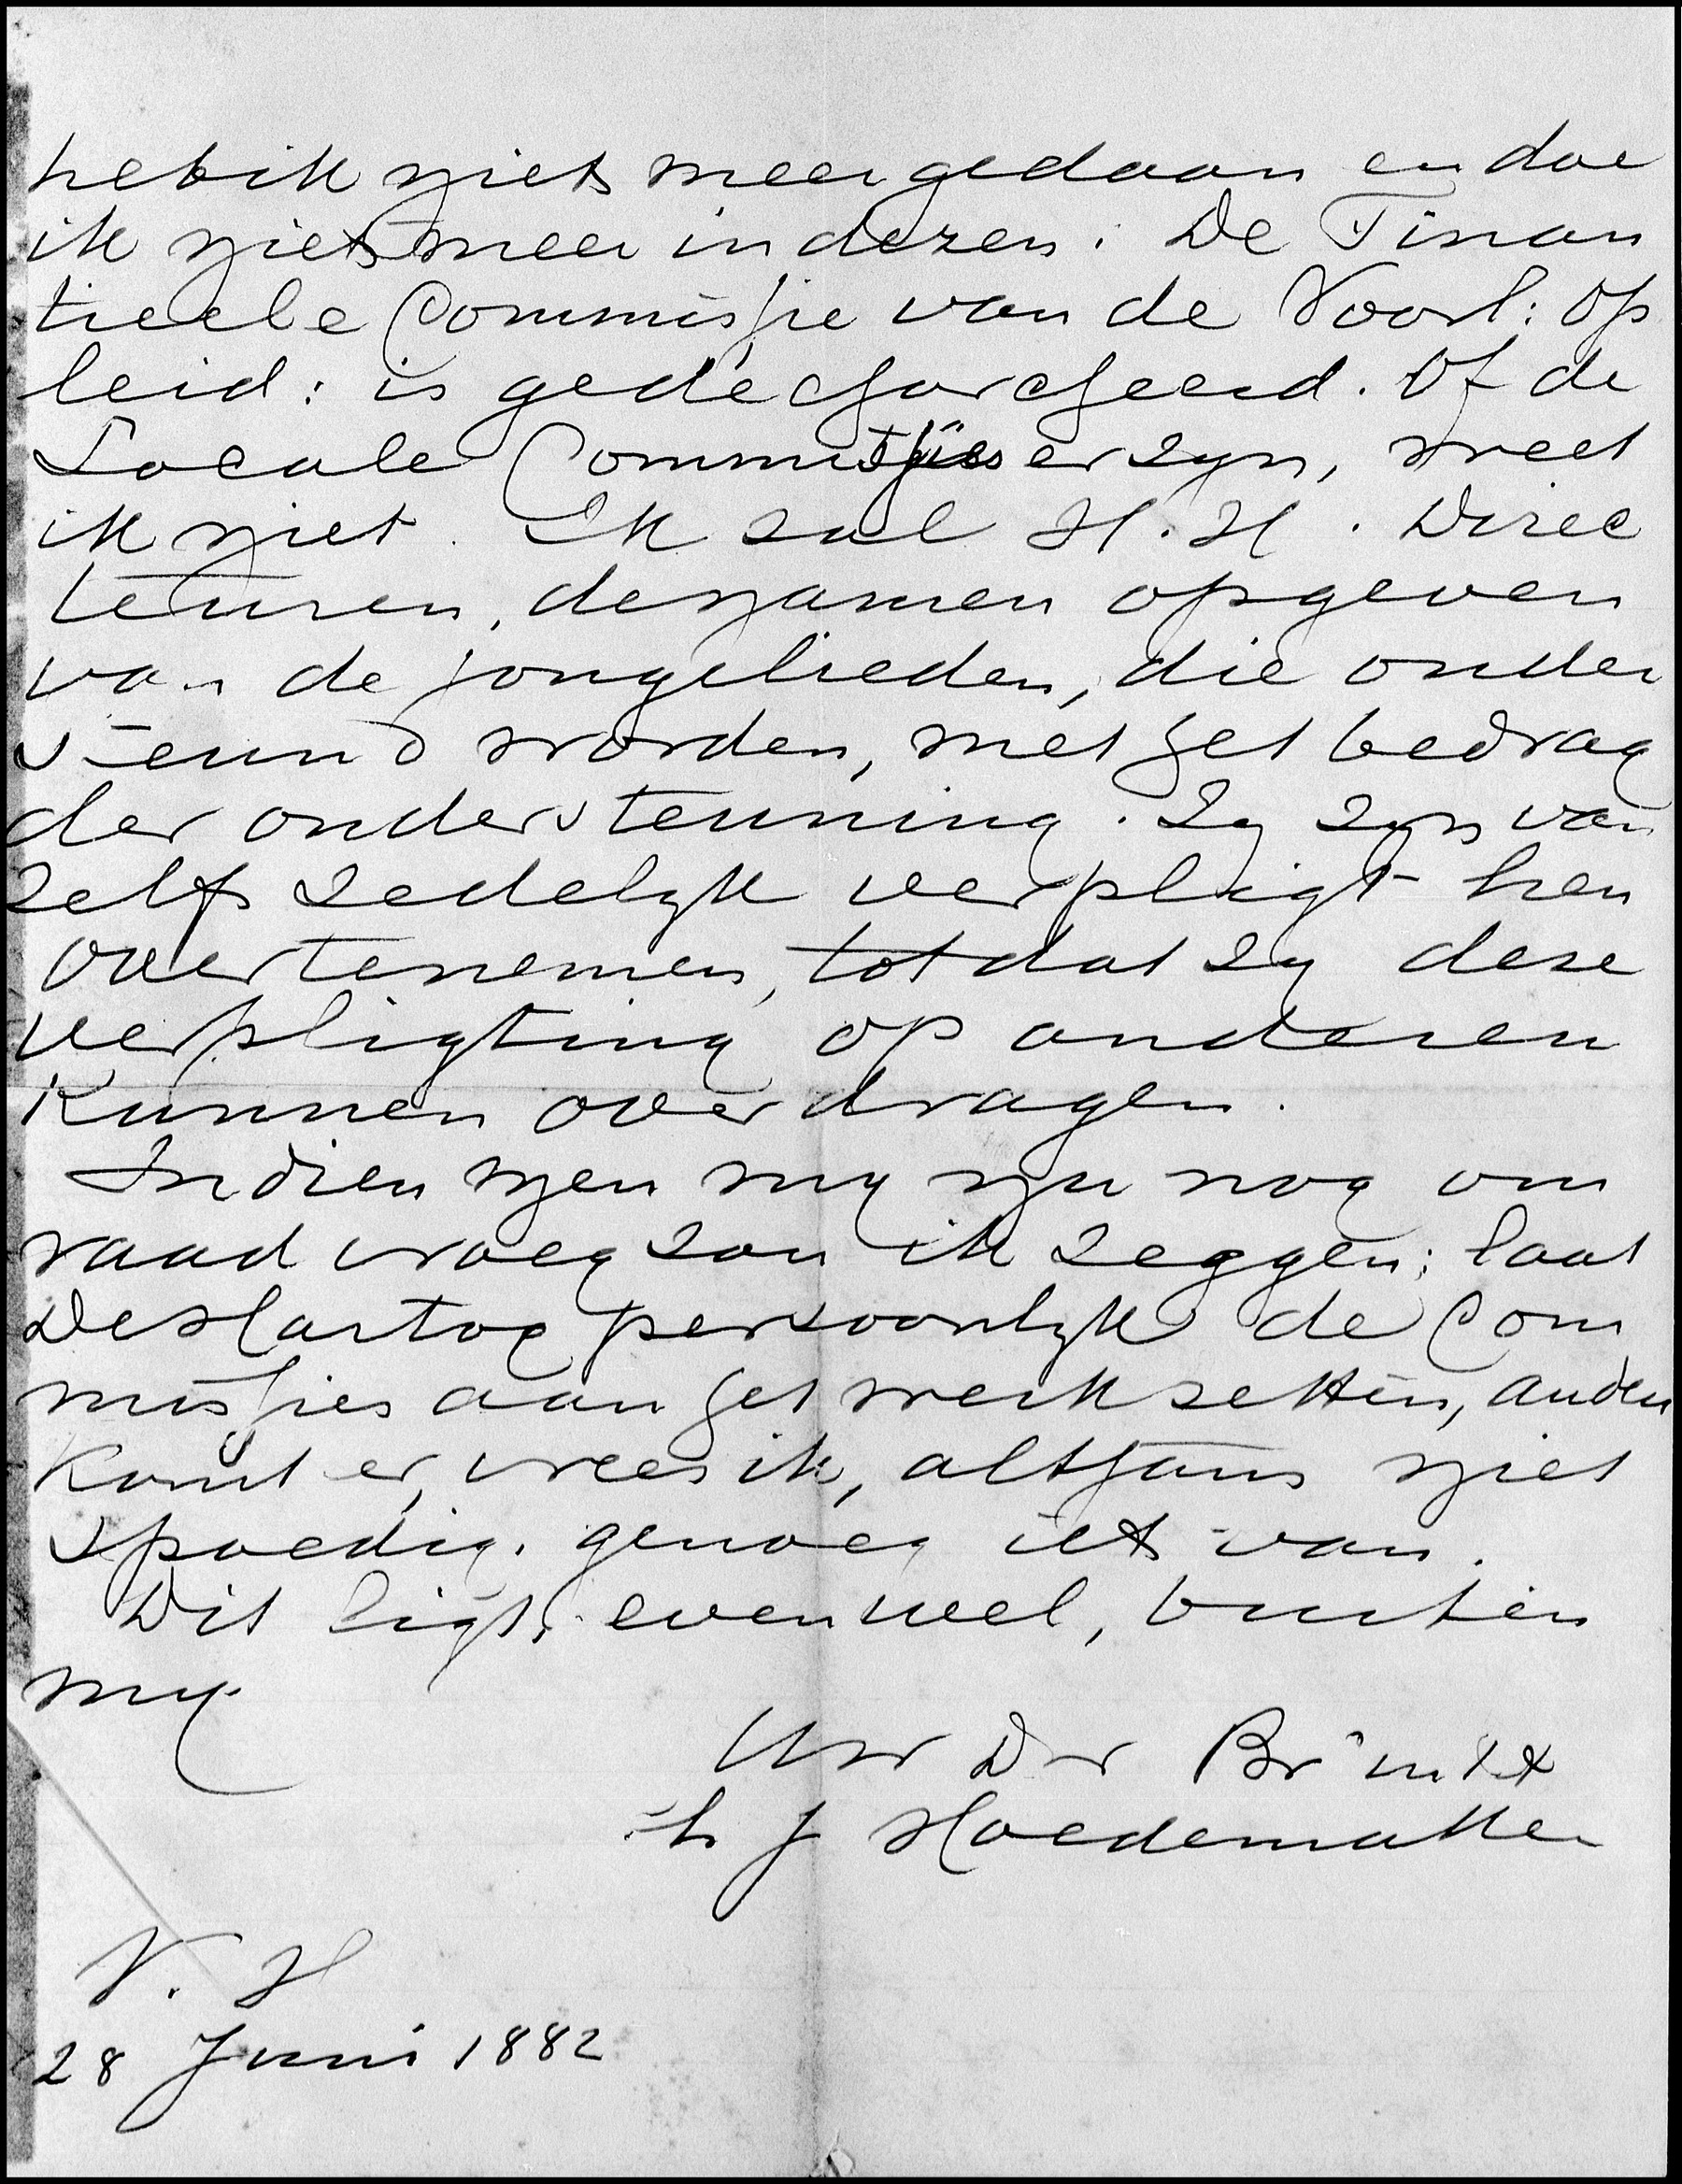 heb ik niets meer gedaan en doe
ik niets meer in dezen. De Finan
tieele Commissie van de Voorl: Op
leid: is gedechargeerd. Of de
Locale Commissies er zyn, weet
ik niet. Ik zal H.H. Direc
teuren, de namen opgeven
van de jongelieden, die onder
steund worden, met het bedrag
der ondersteuning. Zy zyn van
zelfs zedelyk verpligt hen
over te nemen, totdat zy deze
verpligting op anderen
kunnen overdragen.
Indien men my nu nog om
raad vroeg zou ik zeggen: laat
De Hartog persoonlyk de Com
missies aan het werk zetten, anders
komt er, vrees ik, althans niet
spoedig genoeg iets van.
Dit ligt, evenwel, buiten
my.
Uw Dw Br in XX
Ph J Hoedemaker
N. H
28 Juni 1882